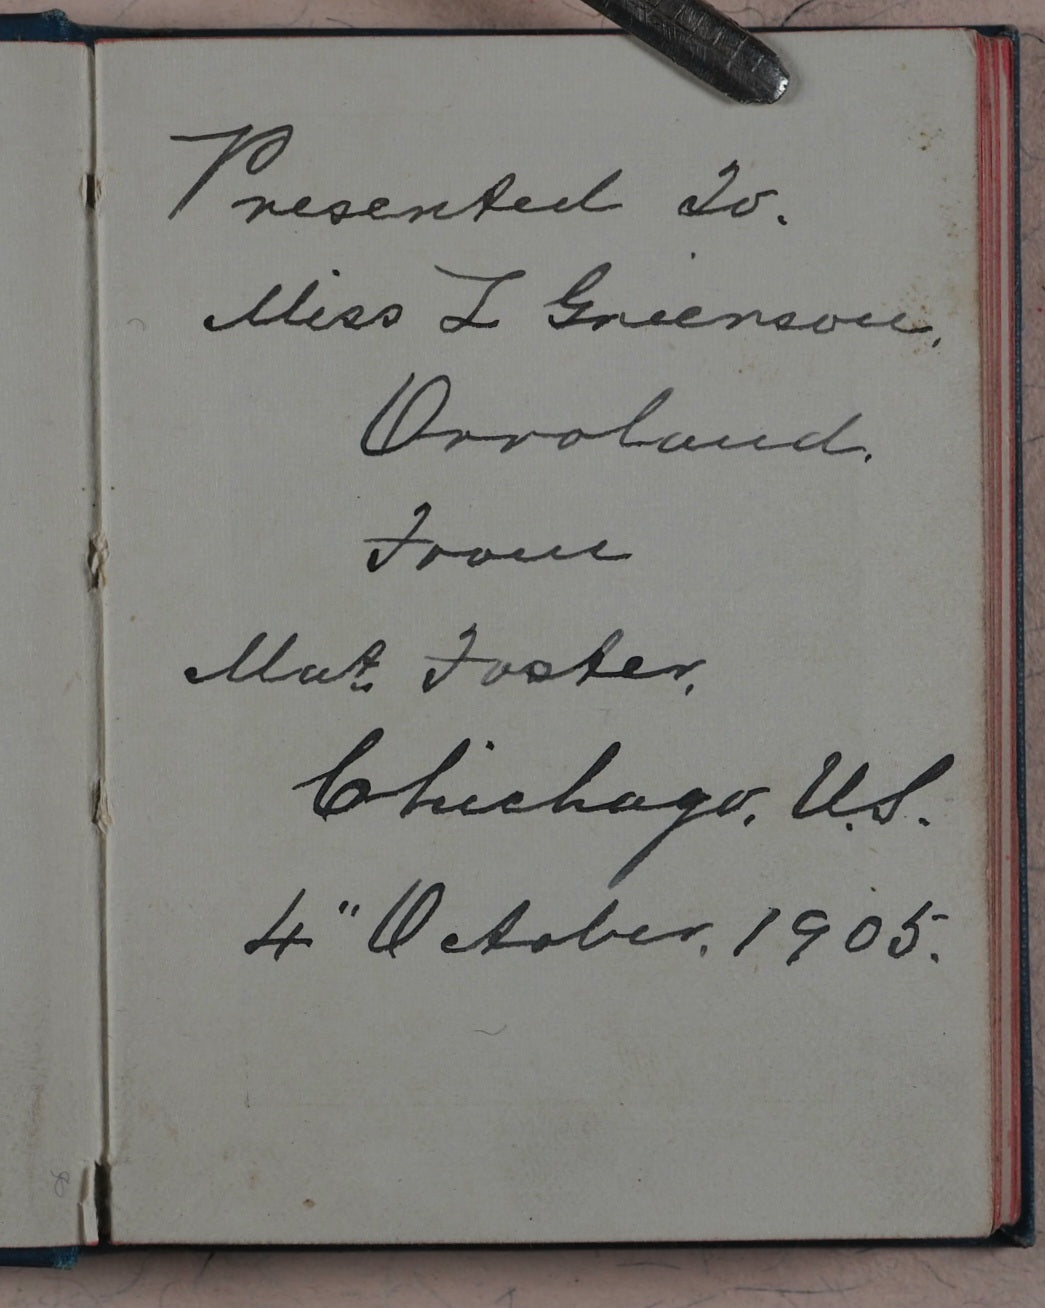 Presented To.
Miss L Grierson.
Orroland.
From
Mat. Foster.
Chichago. U.S.
4" October. 1905.